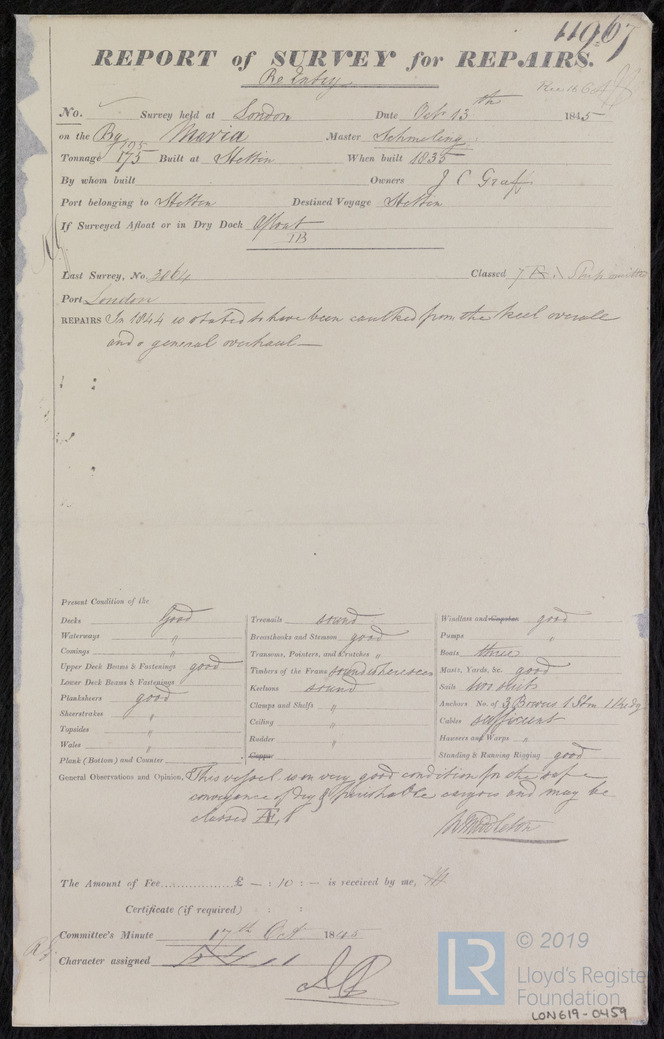 11967
REPORT of SURVEY for REPAIRS.
Re Entry
Rec. 16 Oct
No. Survey held at London Date Oct 13th 1845
on the Bg Maria Master Schmeling
Tonnage 175 Built at Stettin When built 1835
By whom built Owners J C Graf
Port belonging to Stettin Destined Voyage Stettin
If Surveyed Afloat or in Dry Dock Afloat
Last Survey, No. 3064 Classed 7
Port London
REPAIRS In 1844 is stated to have been caulked from the keel overall
and a general overhaul —
Present Condition of the
Decks Good
Waterways "
Comings "
Upper Deck Beams & Fastenings good
Lower Deck Beams & Fastenings
Planksheers good
Sheerstrakes "
Topsides "
Wales "
Plank (Bottom) and Counter
Treenails sound
Breasthooks and Stemson good
Transoms, Pointers, and Crutches "
Timbers of the Frame sound where seen
Keelsons sound
Clamps and Shelfs "
Ceiling "
Rudder "
Copper
Windlass and Capstan good
Pumps "
Boats three
Masts, Yards, &c. good
Sails two suits
Anchors No. of 3 Bowers 1 Stm 1 Kedg
Cables sufficient
Hawsers and Warps "
Standing & Running Rigging good
General Observations and Opinion, This vessel is in very good condition for the safe
conveyance of dry & perishable cargoes and may be
classed Æ 1
W Middleton
The Amount of Fee............ £ — : 10 : — is received by me,
Certificate (if required) : :
Committee's Minute 17th Oct. 1845
Character assigned
© 2019
LR
Lloyd's Registe
Foundation
LON619-0459